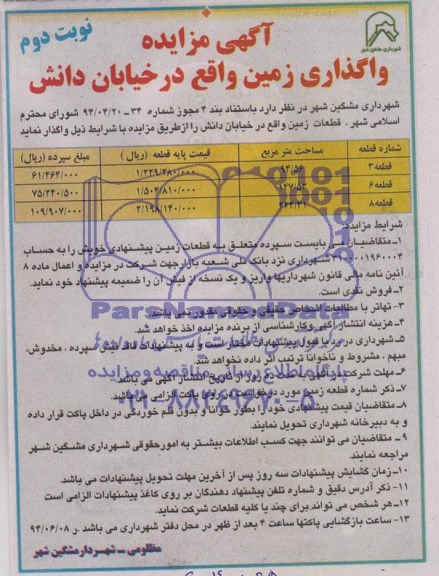 نوبت دوم
شهرداری مشگین شهر
آگهی مزایده
واگذاری زمین واقع در خیابان دانش
شهرداری مشگین شهر در نظر دارد باستناد بند ۴ مجوز شماره ۳۴-۹۴/۰۴/۲۰ شورای محترم
اسلامی شهر ، قطعات زمین واقع در خیابان دانش را ازطریق مزایده با شرایط ذیل واگذار نماید
شماره قطعه مساحت متر مربع قیمت پایه قطعه (ریال) مبلغ سپرده (ریال)
قطعه۳ ۱/۲۲۹/۲۸۰/۰۰۰ ۶۱/۴۶۴/۰۰۰
قطعه۶ ۱/۵۰۴/۸۱۰/۰۰۰ ۷۵/۲۴۰/۵۰۰
قطعه۸ ۲/۱۹۸/۱۴۰/۰۰۰ ۱۰۹/۹۰۷/۰۰۰
شرایط مزایده:
۱-متقاضیان می بایست سپرده متعلق به قطعات زمین پیشنهادی خویش را به حساب
شهرداری نزد بانک ملی شعبه بازار جهت شرکت در مزایده و اعمال ماده ۸
آئین نامه مالی قانون شهرداریها واریز و یک نسخه از فیش آن را ضمیمه پیشنهاد خود نماید.
۲-فروش نقدی است.
۳- تهاتر با مطالبات اشخاص حقیقی و حقوقی مقدور نمی باشد
۴-هزینه انتشار آگهی و کارشناسی از برنده مزایده اخذ خواهد شد.
۵-شهرداری در رد یا قبول پیشنهادات مختار است و به پیشنهادات فاقد فیش سپرده ، مخدوش،
مبهم ، مشروط و ناخوانا ترتیب اثر داده نخواهد شد.
۶- مهلت شرکت در آگهی به مدت ده روز از تاریخ انتشار آگهی می باشد
۷- ذکر شماره قطعه زمین مورد درخواست در روی پاکت الزامی می باشد
۸- متقاضیان قیمت پیشنهادی خود را بطور خوانا و بدون قلم خوردگی در داخل پاکت قرار داده
و به دبیرخانه شهرداری تحویل نمایند.
۹- متقاضیان می توانند جهت کسب اطلاعات بیشتر به امورحقوقی شهرداری مشگین شهر
مراجعه نمایند
۱۰-زمان گشایش پیشنهادات سه روز پس از آخرین مهلت تحویل پیشنهادات می باشد.
۱۱- ذکر آدرس دقیق و شماره تلفن پیشنهاد دهندگان بر روی کاغذ پیشنهادات الزامی است
۱۲-هر شخص می تواند برای چند یا کلیه قطعات شرکت نماید.
۱۳- ساعت بازگشایی پاکتها ساعت ۴ بعد از ظهر در محل دفتر شهرداری می باشد .ر ۹۴/۰۶/۰۸
مظلومی - شهردار مشگین شهر
ParsNamadData
پایگاه اطلاع رسانی مناقصه و مزایده
۰۲۱-۸۸۳۴۹۶۷۰-۵